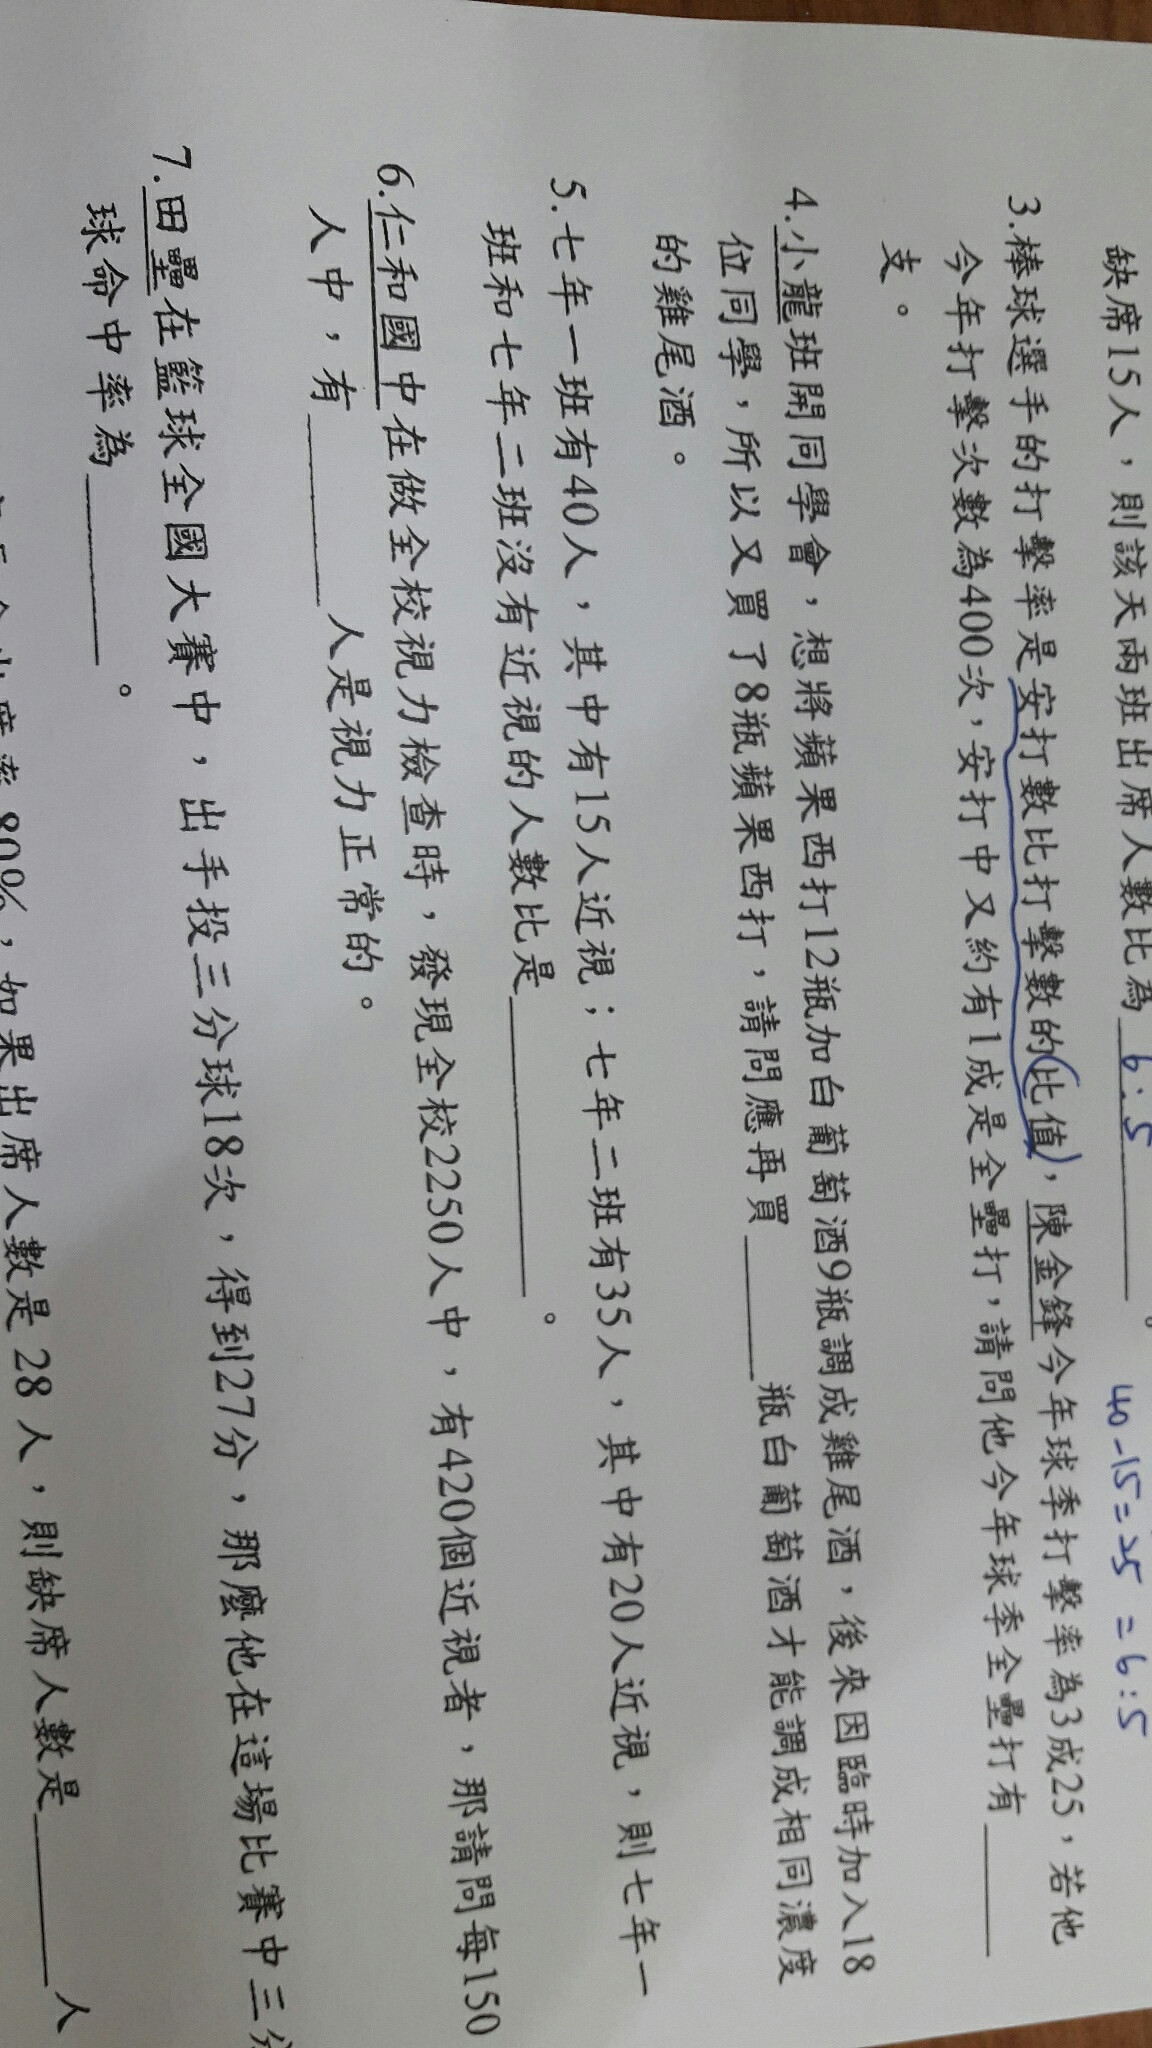 缺席15人，則該天兩班出席人數比為 6:5 。 40-15=25 =6:5
3.棒球選手的打擊率是安打數比打擊數的(比值)，陳金鋒今年球季打擊率為3成25，若他
今年打擊次數為400次，安打中又約有1成是全壘打，請問他今年球季全壘打有______
支。
4.小龍班開同學會，想將蘋果西打12瓶加白葡萄酒9瓶調成雞尾酒，後來因臨時加入18
位同學，所以又買了8瓶蘋果西打，請問應再買______瓶白葡萄酒才能調成相同濃度
的雞尾酒。
5.七年一班有40人，其中有15人近視；七年二班有35人，其中有20人近視，則七年一
班和七年二班沒有近視的人數比是____________。
6.仁和國中在做全校視力檢查時，發現全校2250人中，有420個近視者，那請問每150
人中，有________人是視力正常的。
7.田壘在籃球全國大賽中，出手投三分球18次，得到27分，那麼他在這場比賽中三分
球命中率為________。
率80%，如果出席人數是28人，則缺席人數是________人